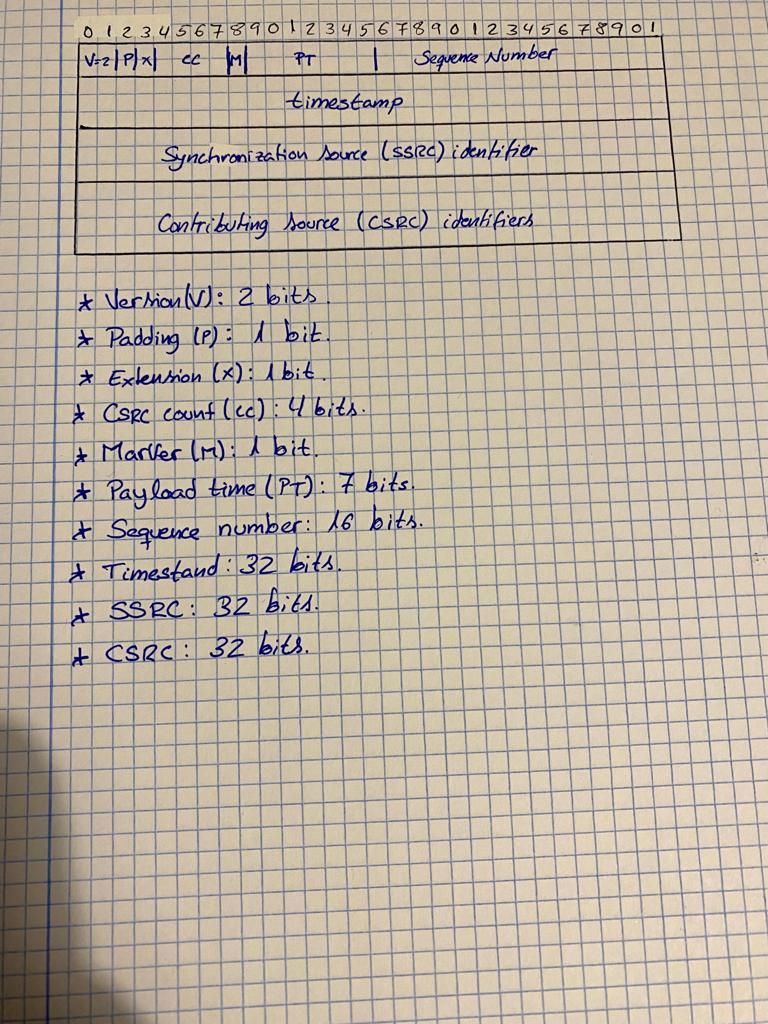 0 1 2 3 4 5 6 7 8 9 0 1 2 3 4 5 6 7 8 9 0 1 2 3 4 5 6 7 8 9 0 1
V=2|P|X| CC |M| PT | Sequence Number
timestamp
Synchronization source (SSRC) identifier
Contributing source (CSRC) identifiers
* Version(V): 2 bits.
* Padding (P): 1 bit.
* Extension (X): 1 bit.
* CSRC count (CC): 4 bits.
* Marker (M): 1 bit.
* Payload time (PT): 7 bits.
* Sequence number: 16 bits.
* Timestand: 32 bits.
* SSRC: 32 bits.
* CSRC: 32 bits.